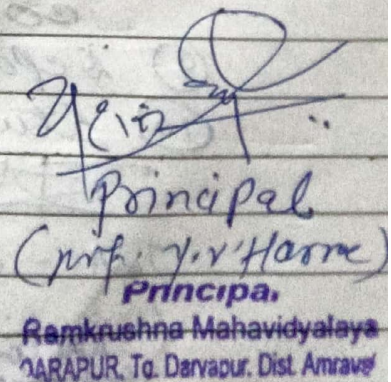 Principal
(prof. y.v. Harne)
Principa.
Ramkrushna Mahavidyalaya
DARAPUR, Tq. Daryapur, Dist. Amrava